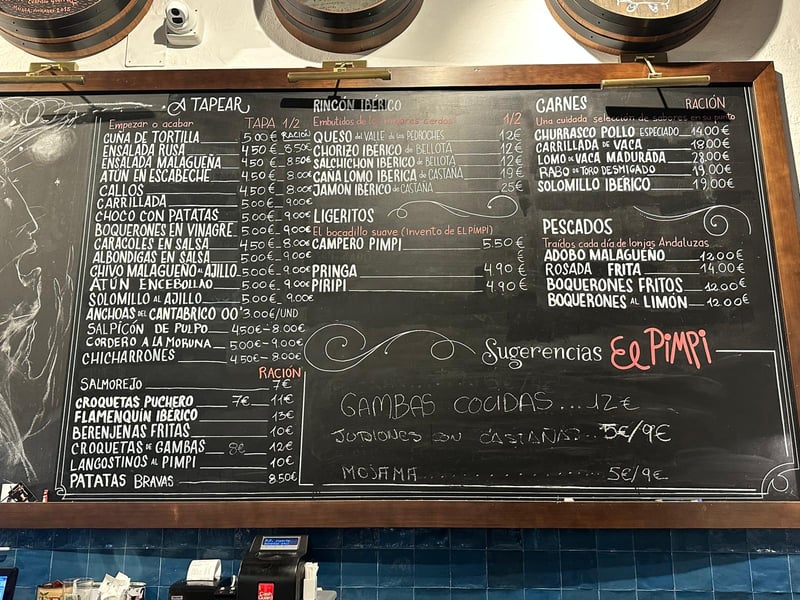 A TAPEAR
Empezar o acabar TAPA 1/2 RACIÓN
CUÑA DE TORTILLA 5,00€
ENSALADA RUSA 4,50€ 8,50€
ENSALADA MALAGUEÑA 4,50€ 8,50€
ATÚN EN ESCABECHE 4,50€ 8,00€
CALLOS 4,50€ 8,00€
CARRILLADA 5,00€ 9,00€
CHOCO CON PATATAS 5,00€ 9,00€
BOQUERONES EN VINAGRE 5,00€ 9,00€
CARACOLES EN SALSA 4,50€ 8,00€
ALBONDIGAS EN SALSA 5,00€ 9,00€
CHIVO MALAGUEÑO AL AJILLO 5,00€ 9,00€
ATÚN ENCEBOLLAO 5,00€ 9,00€
SOLOMILLO AL AJILLO 5,00€ 9,00€
ANCHOAS DEL CANTABRICO 00' 3,00€/UND
SALPICÓN DE PULPO 4,50€ 8,00€
CORDERO A LA MORUNA 5,00€ 9,00€
CHICHARRONES 4,50€ 8,00€
RACIÓN
SALMOREJO 7€
CROQUETAS PUCHERO 7€ 11€
FLAMENQUÍN IBÉRICO 13€
BERENJENAS FRITAS 10€
CROQUETAS DE GAMBAS 8€ 12€
LANGOSTINOS AL PIMPI 10€
PATATAS BRAVAS 8,50€
RINCÓN IBÉRICO
Embutidos de los cerdos 1/2
QUESO del VALLE de los PEDROCHES 12€
CHORIZO IBÉRICO de BELLOTA 12€
SALCHICHON IBÉRICO de BELLOTA 12€
CAÑA LOMO IBÉRICA de CASTAÑA 19€
JAMON IBÉRICO de CASTAÑA 25€
LIGERITOS
El bocadillo suave (Invento de EL PIMPI)
CAMPERO PIMPI 5.50€
€
PRINGA 4.90€
PIRIPI 4.90€
CARNES RACIÓN
Una cuidada selección de sabores en su punto
CHURRASCO POLLO ESPECIADO 14,00€
CARRILLADA DE VACA 18,00€
LOMO DE VACA MADURADA 28,00€
RABO DE TORO DESMIGADO 19,00€
SOLOMILLO IBÉRICO 19,00€
PESCADOS
Traídos cada día de lonjas Andaluzas
ADOBO MALAGUEÑO 12,00€
ROSADA FRITA 14,00€
BOQUERONES FRITOS 12,00€
BOQUERONES AL LIMÓN 12,00€
Sugerencias El PiMPi
GAMBAS COCIDAS...12€
JUDIONES CON CASTAÑAS.. 5€/9€
MOJAMA............5€/9€